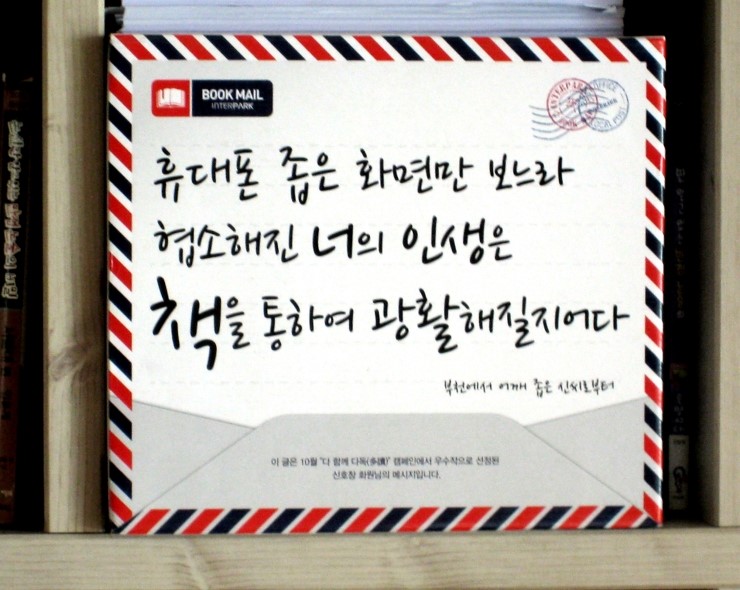 BOOK MAIL
INTERPARK
휴대폰 좁은 화면만 보느라
협소해진 너의 인생은
책을 통하여 광활해질지어다
부천에서 어깨 좁은 신씨로부터
이 글은 10월 "다 함께 다독(多讀)" 캠페인에서 우수작으로 선정된
신호창 회원님의 메시지입니다.